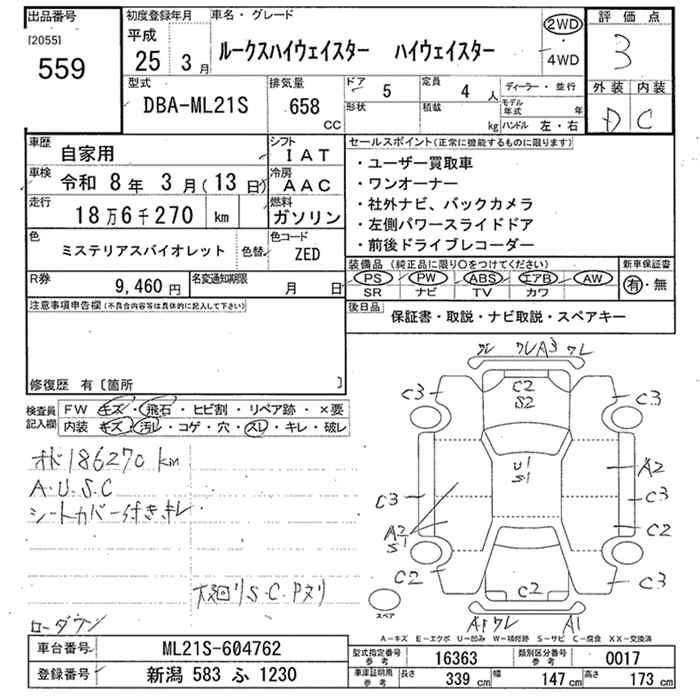 出品番号
[2055]
559
初度登録年月
平成
25年 3月
車名・グレード
ルークスハイウェイスター ハイウェイスター
2WD
4WD
評価点
3
外装 内装
D C
型式
DBA-ML21S
排気量
658
CC
ドア 5
形状
定員 4 人
積載 kg
ディーラー・並行
モデル年式 年
ハンドル 左・右
車歴 自家用
車検 令和 8年 3月(13日)
走行 18万6千270 km
シフト IAT
冷房 AAC
燃料 ガソリン
色 ミステリアスバイオレット 色替
色コード ZED
R券 9,460円
名変通知期限 月 日
セールスポイント(正常に機能するものに限ります)
・ユーザー買取車
・ワンオーナー
・社外ナビ、バックカメラ
・左側パワースライドドア
・前後ドライブレコーダー
装備品(純正品に限り○をつけてください)
PS PW ABS エアB AW
SR ナビ TV カワ
新車保証書
有・無
後日品 保証書・取説・ナビ取説・スペアキー
注意事項申告欄(不具合内容等は具体的に記入して下さい)
修復歴 有〔箇所 〕
検査員記入欄
FW キズ・飛石・ヒビ割・リペア跡・×要
内装 キズ・汚レ・コゲ・穴・スレ・キレ・破レ
オド186270km
A.U.S.C
シートカバー付きキレ
下廻りS.C.Pヌリ
ローダウン
ワレ ワレA3 ワレ
C3 C2 S2 C3
U1 S1
A2
C3 C3
A2 S1
C2
C2 C2 C3
スペア
A1ワレ A1
A－キズ E－エクボ U－凹み W－補修跡 S－サビ C－腐食 XX－交換済
車台番号 ML21S-604762
登録番号 新潟 583 ふ 1230
型式指定番号 参考 16363
類別区分番号 参考 0017
車庫証明用 参考 長さ 339cm 幅 147cm 高さ 173cm